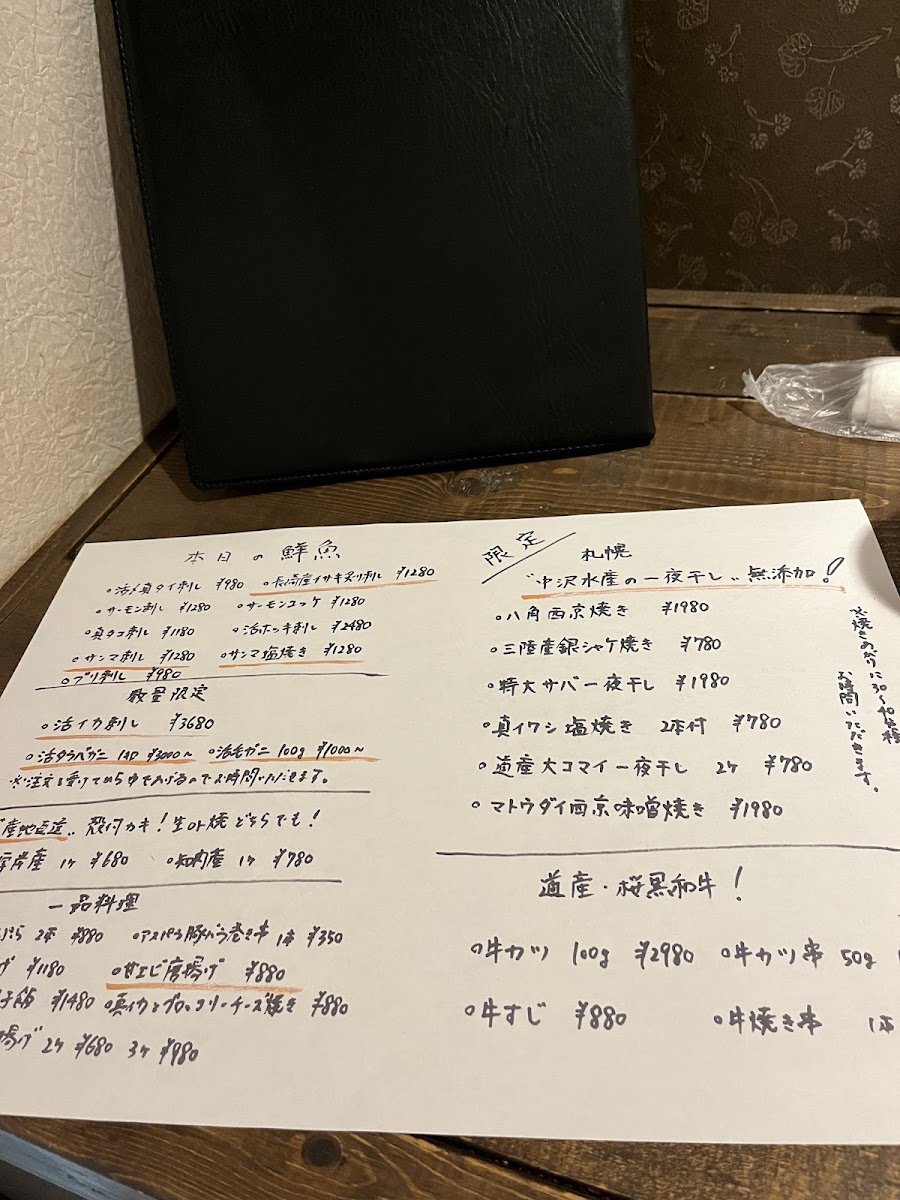 本日の鮮魚
○活〆真タイ刺し ¥980 ○長崎産イサキ炙り刺し ¥1280
○サーモン刺し ¥1280 ○サーモンユッケ ¥1280
○真タコ刺し ¥1180 ○活ホッキ刺し ¥2480
○サンマ刺し ¥1280 ○サンマ塩焼き ¥1280
○ブリ刺し ¥980
数量限定
○活イカ刺し ¥3680
○活タラバガニ ¥3000〜 ○活毛ガニ 100g ¥1000〜
※注文を受けてからゆであげるのでお時間いただきます。
"産地直送" 殻付カキ!生or焼どちらでも!
厚岸産 1ケ ¥680 ○知内産 1ケ ¥780
一品料理
2本 ¥880 ○アスパラ豚バラ巻き串 1本 ¥350
¥1180 ○甘エビ唐揚げ ¥880
¥1480 ○真イカとブロッコリーチーズ焼き ¥880
揚げ 2ケ ¥680 3ケ ¥980
限定
札幌
"中沢水産の一夜干し" 無添加!
○八角西京焼き ¥1980
○三陸産銀シャケ焼き ¥780
○特大サバ一夜干し ¥1980
○真イワシ塩焼き 2本付 ¥780
○道産大コマイ一夜干し 2ケ ¥780
○マトウダイ西京味噌焼き ¥1980
※焼きあがりに30〜40分程
お時間いただきます。
道産・桜黒和牛!
○牛カツ 100g ¥2980 ○牛カツ串 50g
○牛すじ ¥880 ○牛焼き串 1本